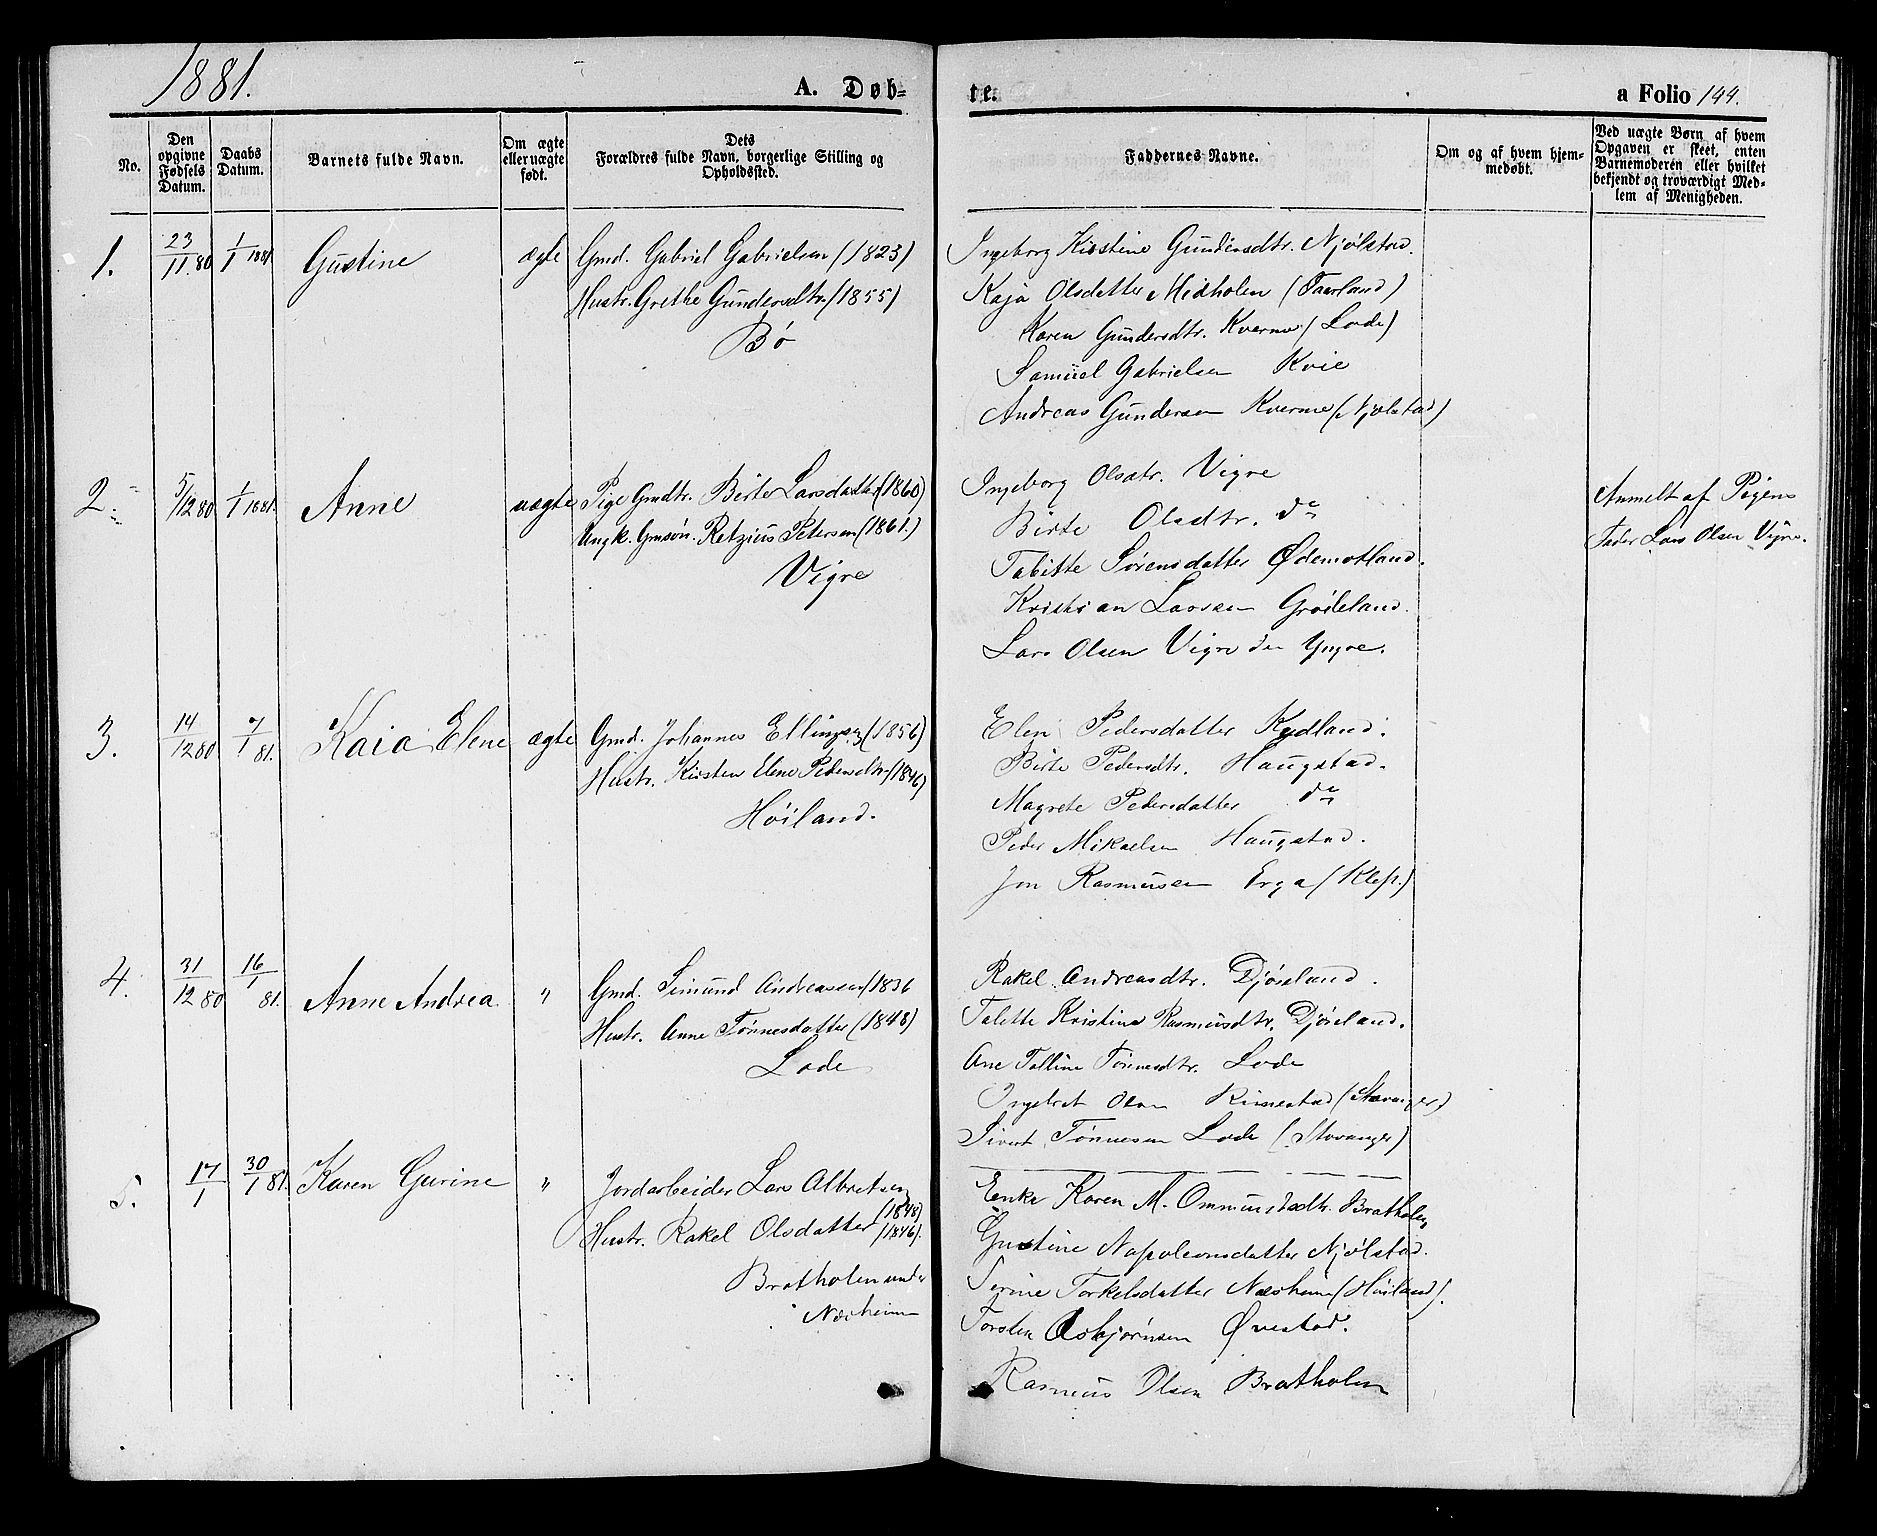 1881.
A. Døb-
te.
a Folio 144.
No.
Den opgivne Fødsels Datum.
Daabs Datum.
Barnets fulde Navn.
Om ægte eller uægte født.
Dets Forældres fulde Navn, borgerlige Stilling og Opholdssted.
Faddernes Navne.
Om og af hvem hjem-medøbt.
Ved uægte Børn af hvem Opgaven er skeet, enten Barnemoderen eller hvilket bekjendt og troværdigt Med-lem af Menigheden.
1.
23/11 80
1/1 1881
Gustine
ægte
Gmd. Gabriel Gabrielsen (1823)
Hustr. Grethe Gundersdtr. (1855)
Bø
Ingeborg Kirstine Gundersdtr. Njølstad.
Kaja Olsdatter Midholen (Taarland)
Karen Gundersdtr. Kverme (Lode)
Samuel Gabrielsen Kvie
Andreas Gundersen Kverme (Njølstad)
2.
5/12 80
1/1 1881.
Anne
uægte
Pige Gmdtr. Birte Larsdatter (1860)
Ungk. Gmsøn. Retzius Petersen (1861.)
Vigre
Ingeborg Olsdtr. Vigre
Birte Olsdtr. do
Tabitte Sørensdatter Ødemotland.
Kristian Larsen Grødeland.
Lars Olsen Vigre den Yngre.
Anmeldt af Pigens
Fader Lars Olsen Vigre.
3.
14/12 80
7/1 81.
Kaia Elene
ægte
Gmd. Johannes Ellingsen (1856)
Hustr. Kirsten Elene Pedersdtr. (1846)
Høiland.
Elen Pedersdatter Kydland.
Birte Pedersdtr. Haugstad.
Magrete Pedersdatter do
Peder Mikaelsen Haugstad.
Jon Rasmusen Erga (Klep.)
4.
31/12 80
16/1 81.
Anne Andrea
"
Gmd. Simund Andreassen (1836
Hustr. Anne Tønnesdatter (1848)
Lode
Rakel Andreasdtr. Djøsland.
Talette Kristine Rasmusdtr. Djøsland.
Ane Talline Tønnesdtr. Lode
Ingebret Olsen Rimestad (Stavanger)
Sivert Tønnesen Lode (Stavanger)
5.
17/1
30/1 81.
Karen Gurine
"
Jordarbeider Lars Albretsen
(1848)
Hustr. Rakel Olsdatter (1846).
Bratholen under
Næsheim
Enke Karen M. Ommundsdtr. Bratholen
Gustine Napoleonsdatter Njølstad.
Serine Torkelsdatter Næsheim (Høiland).
Torsten Asbjørnsen Øvestad.
Rasmus Olsen Bratholen